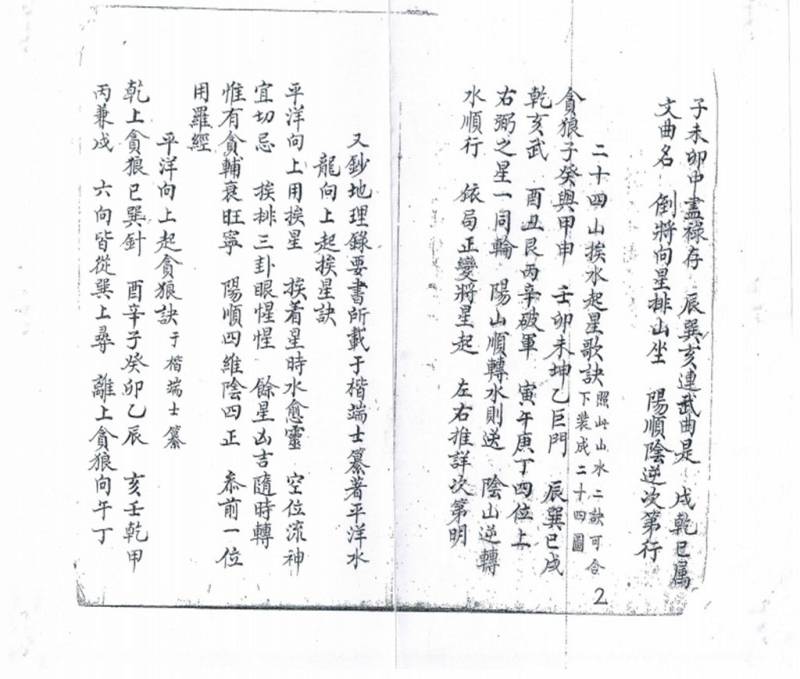 子未卯申盡祿存　辰巽亥連武曲是　戌乾巳属
文曲名　倒將向星排山坐　陽順陰逆次第行
二十四山挨水起星歌訣 照此山水二訣可合
下裝成二十四圖
貪狼子癸與甲申　壬卯未坤乙巨門　辰巽巳戌
乾亥武　酉丑艮丙辛破軍　寅午庚丁四位上
右弼之星一同輪　陽山順轉水則逆　陰山逆轉
水順行　依局正變將星起　左右推詳次第明
2
又鈔地理錄要書所載于楷端士纂著平洋水
龍向上起挨星訣
平洋向上用挨星　挨着星時水愈靈　空位流神
宜切忌　挨排三卦眼惺惺　餘星凶吉隨時轉
惟有貪輔衰旺寧　陽順四維陰四正　叅前一位
用羅經
平洋向上起貪狼訣 于楷端士纂
乾上貪狼巳巽針　酉辛子癸卯乙辰　亥壬乾甲
丙兼戌　六向皆從巽上尋　離上貪狼向午丁